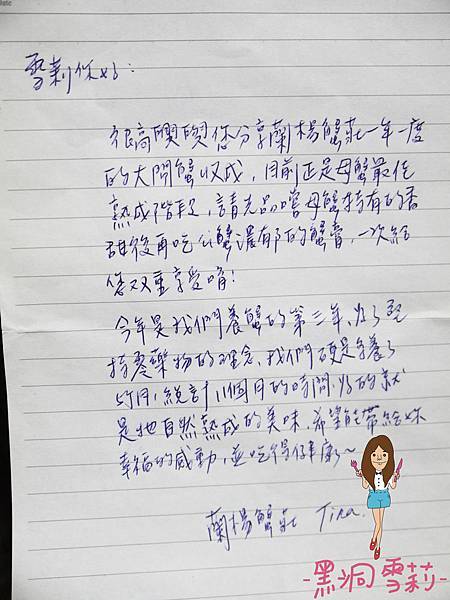 雪莉你好：
很高興與您分享蘭楊蟹莊一年一度
的大閘蟹收成，目前正是母蟹最佳
熟成階段，請先品嚐母蟹特有的香
甜後再吃公蟹濃郁的蟹膏，一次給
您双重享受唷！
今年是我們養蟹的第三年，為了堅
持零藥物的理念，我們硬是多養了
5個月，總計11個月的時間，為的就
是她自然熟成的美味，希望能帶給妳
幸福的感動，並吃得健康～
蘭楊蟹莊 Tina.
-黑洞雪莉-